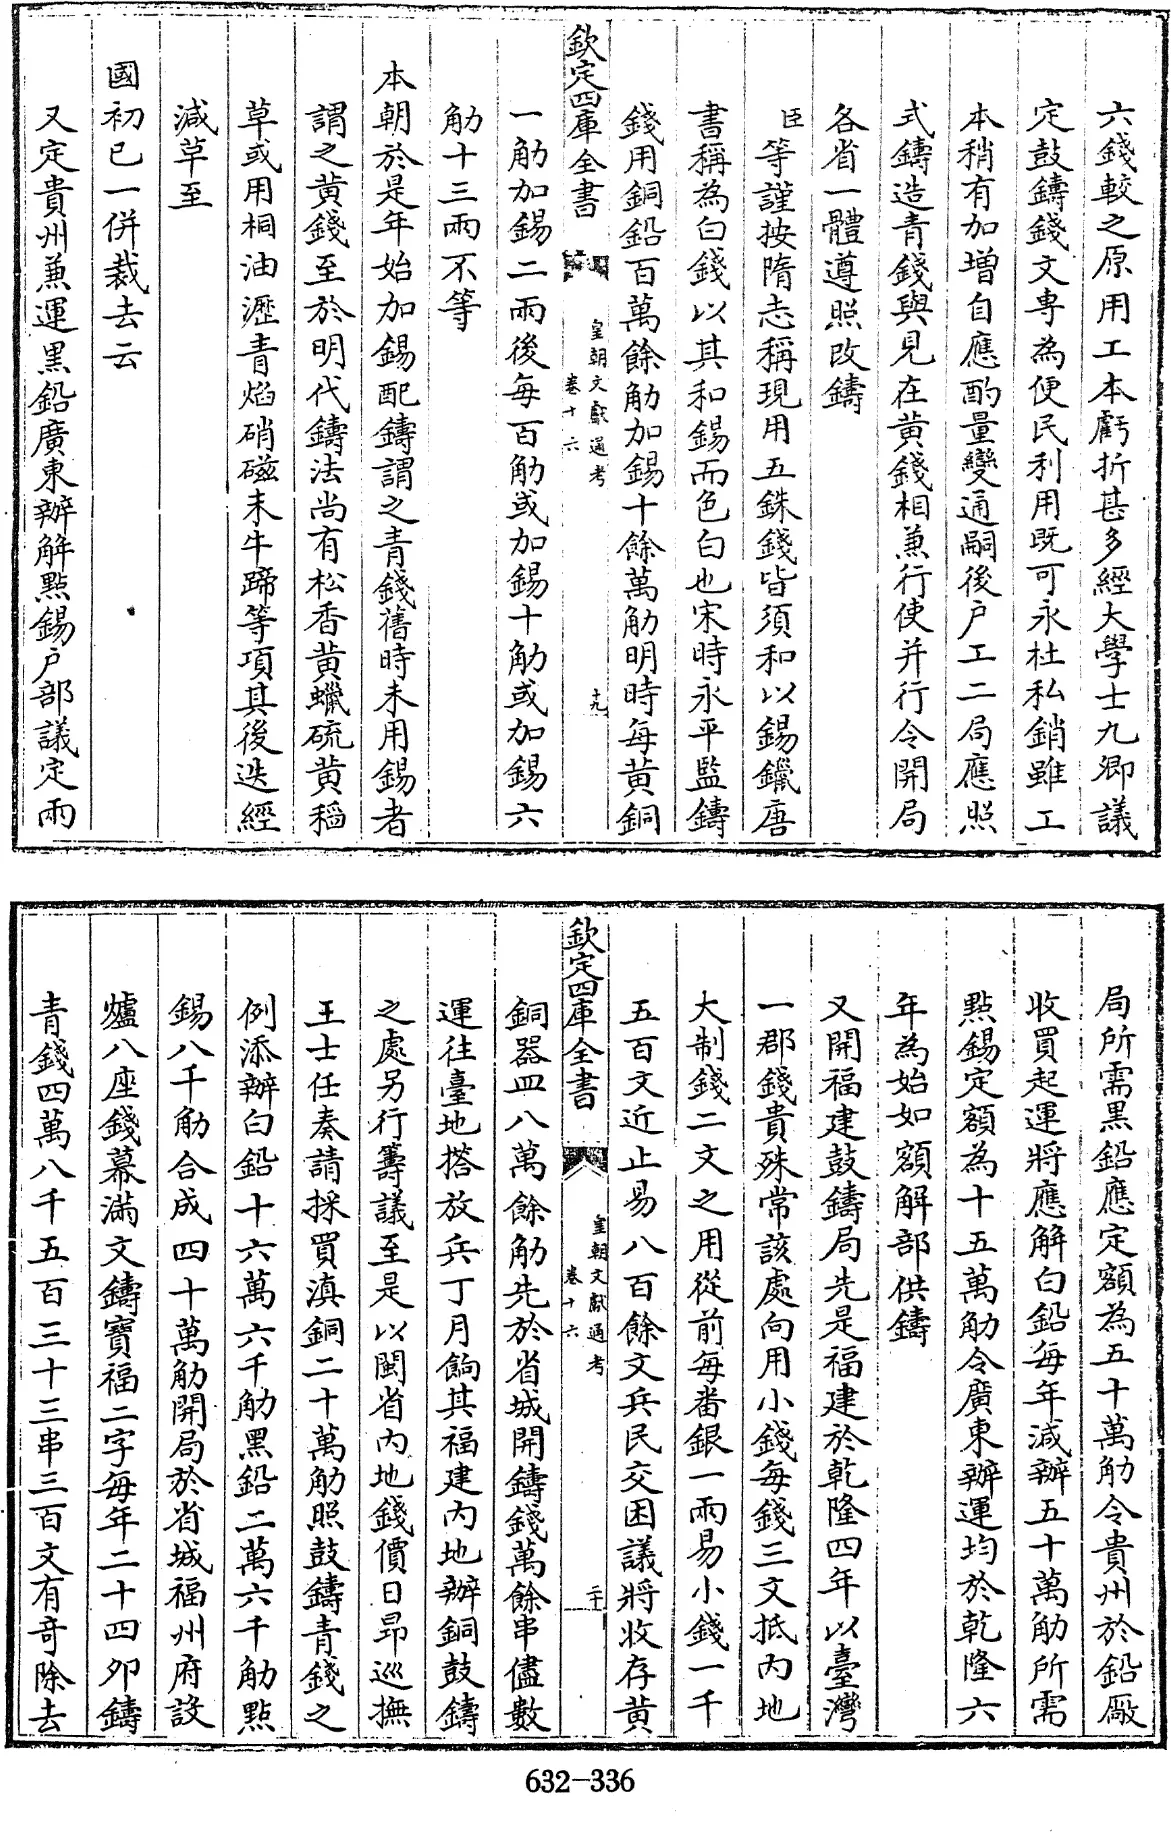 六錢較之原用工本虧折甚多經大學士九卿議
定鼓鑄錢文專為便民利用既可永杜私銷雖工
本稍有加增自應酌量變通嗣後户工二局應照
式鑄造青錢與見在黄錢相兼行使并行令開局
各省一體遵照改鑄
臣等謹按隋志稱現用五銖錢皆須和以錫鑞唐
書稱為白錢以其和錫而色白也宋時永平監鑄
錢用銅鉛百萬餘觔加錫十餘萬觔明時每黄銅
欽定四庫全書
皇朝文獻通考
卷十六
十九
一觔加錫二兩後每百觔或加錫十觔或加錫六
觔十三兩不等
本朝於是年始加錫配鑄謂之青錢舊時未用錫者
謂之黄錢至於明代鑄法尚有松香黄蠟硫黄稻
草或用桐油瀝青焰硝磁末牛蹄等項其後迭經
減革至
國初已一併裁去云
又定貴州兼運黒鉛廣東辦解點錫户部議定兩
局所需黒鉛應定額為五十萬觔令貴州於鉛厰
收買起運將應解白鉛每年減辦五十萬觔所需
點錫定額為十五萬觔令廣東辦運均於乾隆六
年為始如額解部供鑄
又開福建鼓鑄局先是福建於乾隆四年以臺灣
一郡錢貴殊常該處向用小錢每錢三文抵内地
大制錢二文之用從前每番銀一兩易小錢一千
五百文近止易八百餘文兵民交困議將收存黄
欽定四庫全書
皇朝文獻通考
卷十六
二十
銅器皿八萬餘觔先於省城開鑄錢萬餘串儘數
運往臺地搭放兵丁月餉其福建内地辦銅鼓鑄
之處另行籌議至是以閩省内地錢價日昻巡撫
王士任奏請採買滇銅二十萬觔照鼓鑄青錢之
例添辦白鉛十六萬六千觔黒鉛二萬六千觔點
錫八千觔合成四十萬觔開局於省城福州府設
爐八座錢幕滿文鑄寳福二字每年二十四夘鑄
青錢四萬八千五百三十三串三百文有竒除去
632-336